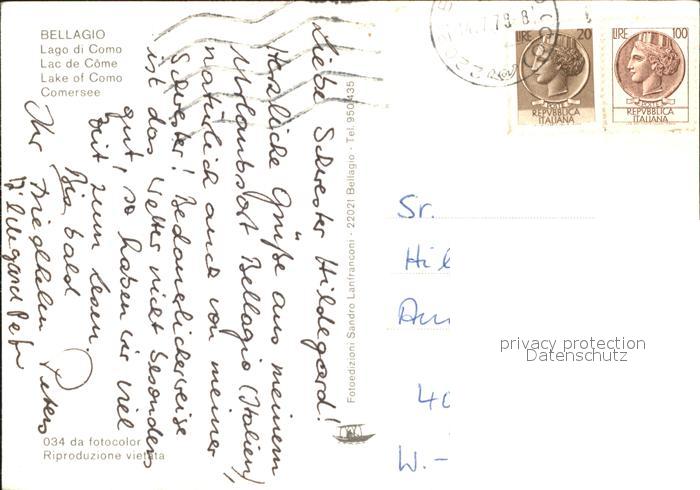 BELLAGIO
Lago di Como
Lac de Côme
Lake of Como
Comersee
Liebe Schwester Hildegard!
Herzliche Grüße aus meinem
Urlaubsort Bellagio (Italien),
natürlich auch von meiner
Schwester! Bedauerlicherweise
ist das Wetter nicht besonders
gut, so haben wir viel
Zeit zum Lesen.
Bis bald
Ihr Friedhelm Peters
Hildegard Peters
034 da fotocolor
Riproduzione vietata
Fotoedizioni Sandro Lanfranconi - 22021 Bellagio - Tel. 950.435
14.7.79-8
LIRE 20
REPVBBLICA
ITALIANA
LIRE 100
REPVBBLICA
ITALIANA
Sr.
Hil
Am
40
W.-
privacy protection
Datenschutz